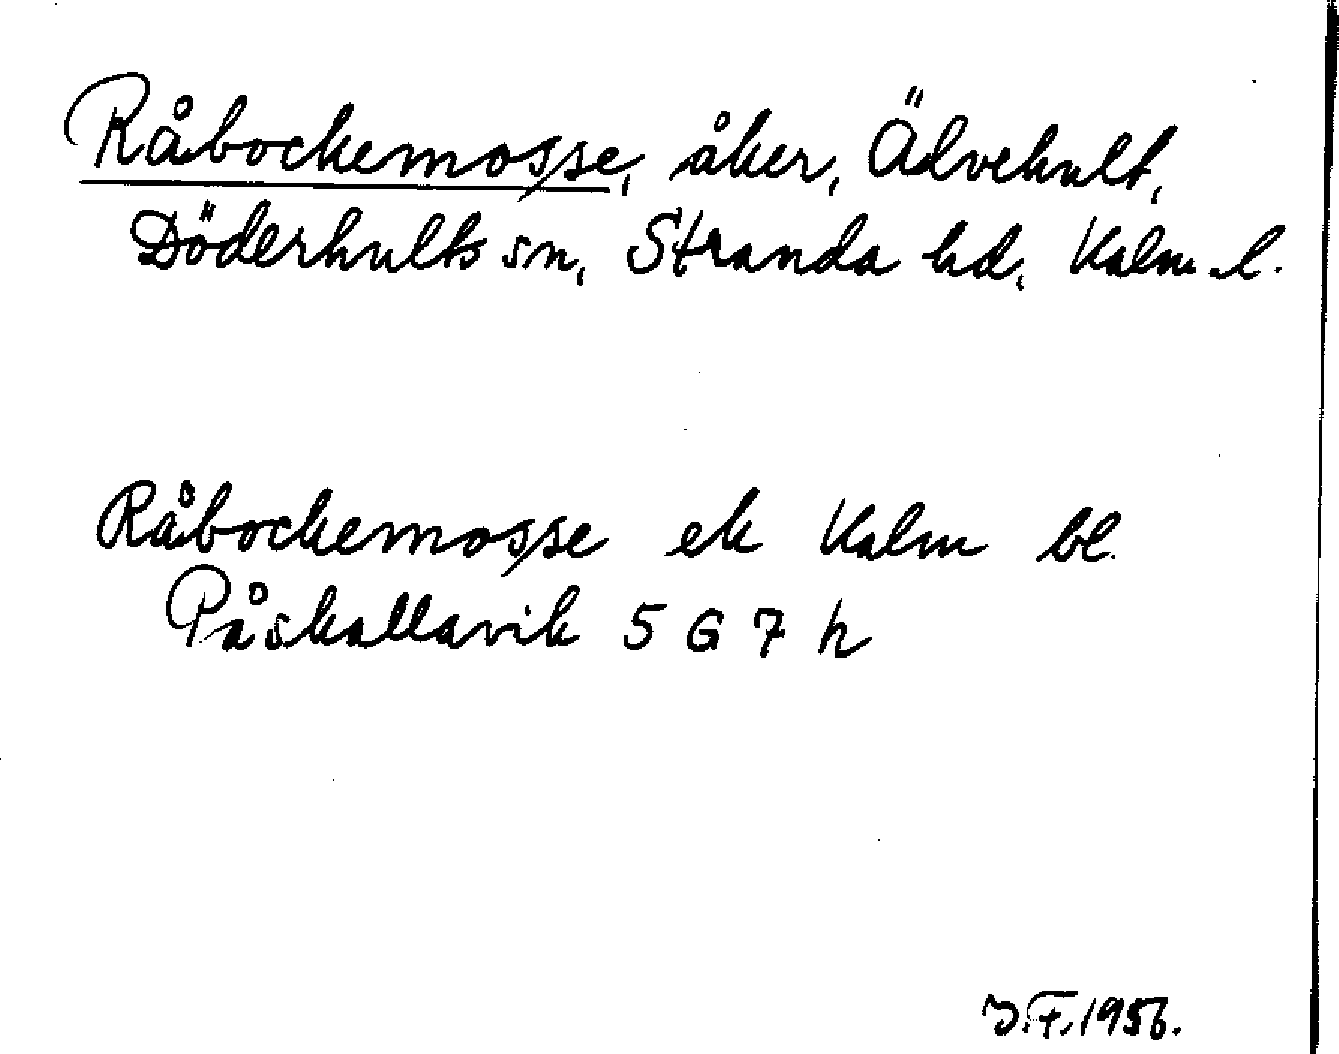 Råbockemosse, åker, Älvehult,
Döderhults sn, Stranda hd, Kalm. l.
Råbockemosse ek Kalm bl.
Påskallavik 5 G 7 h
J.F. 1956.